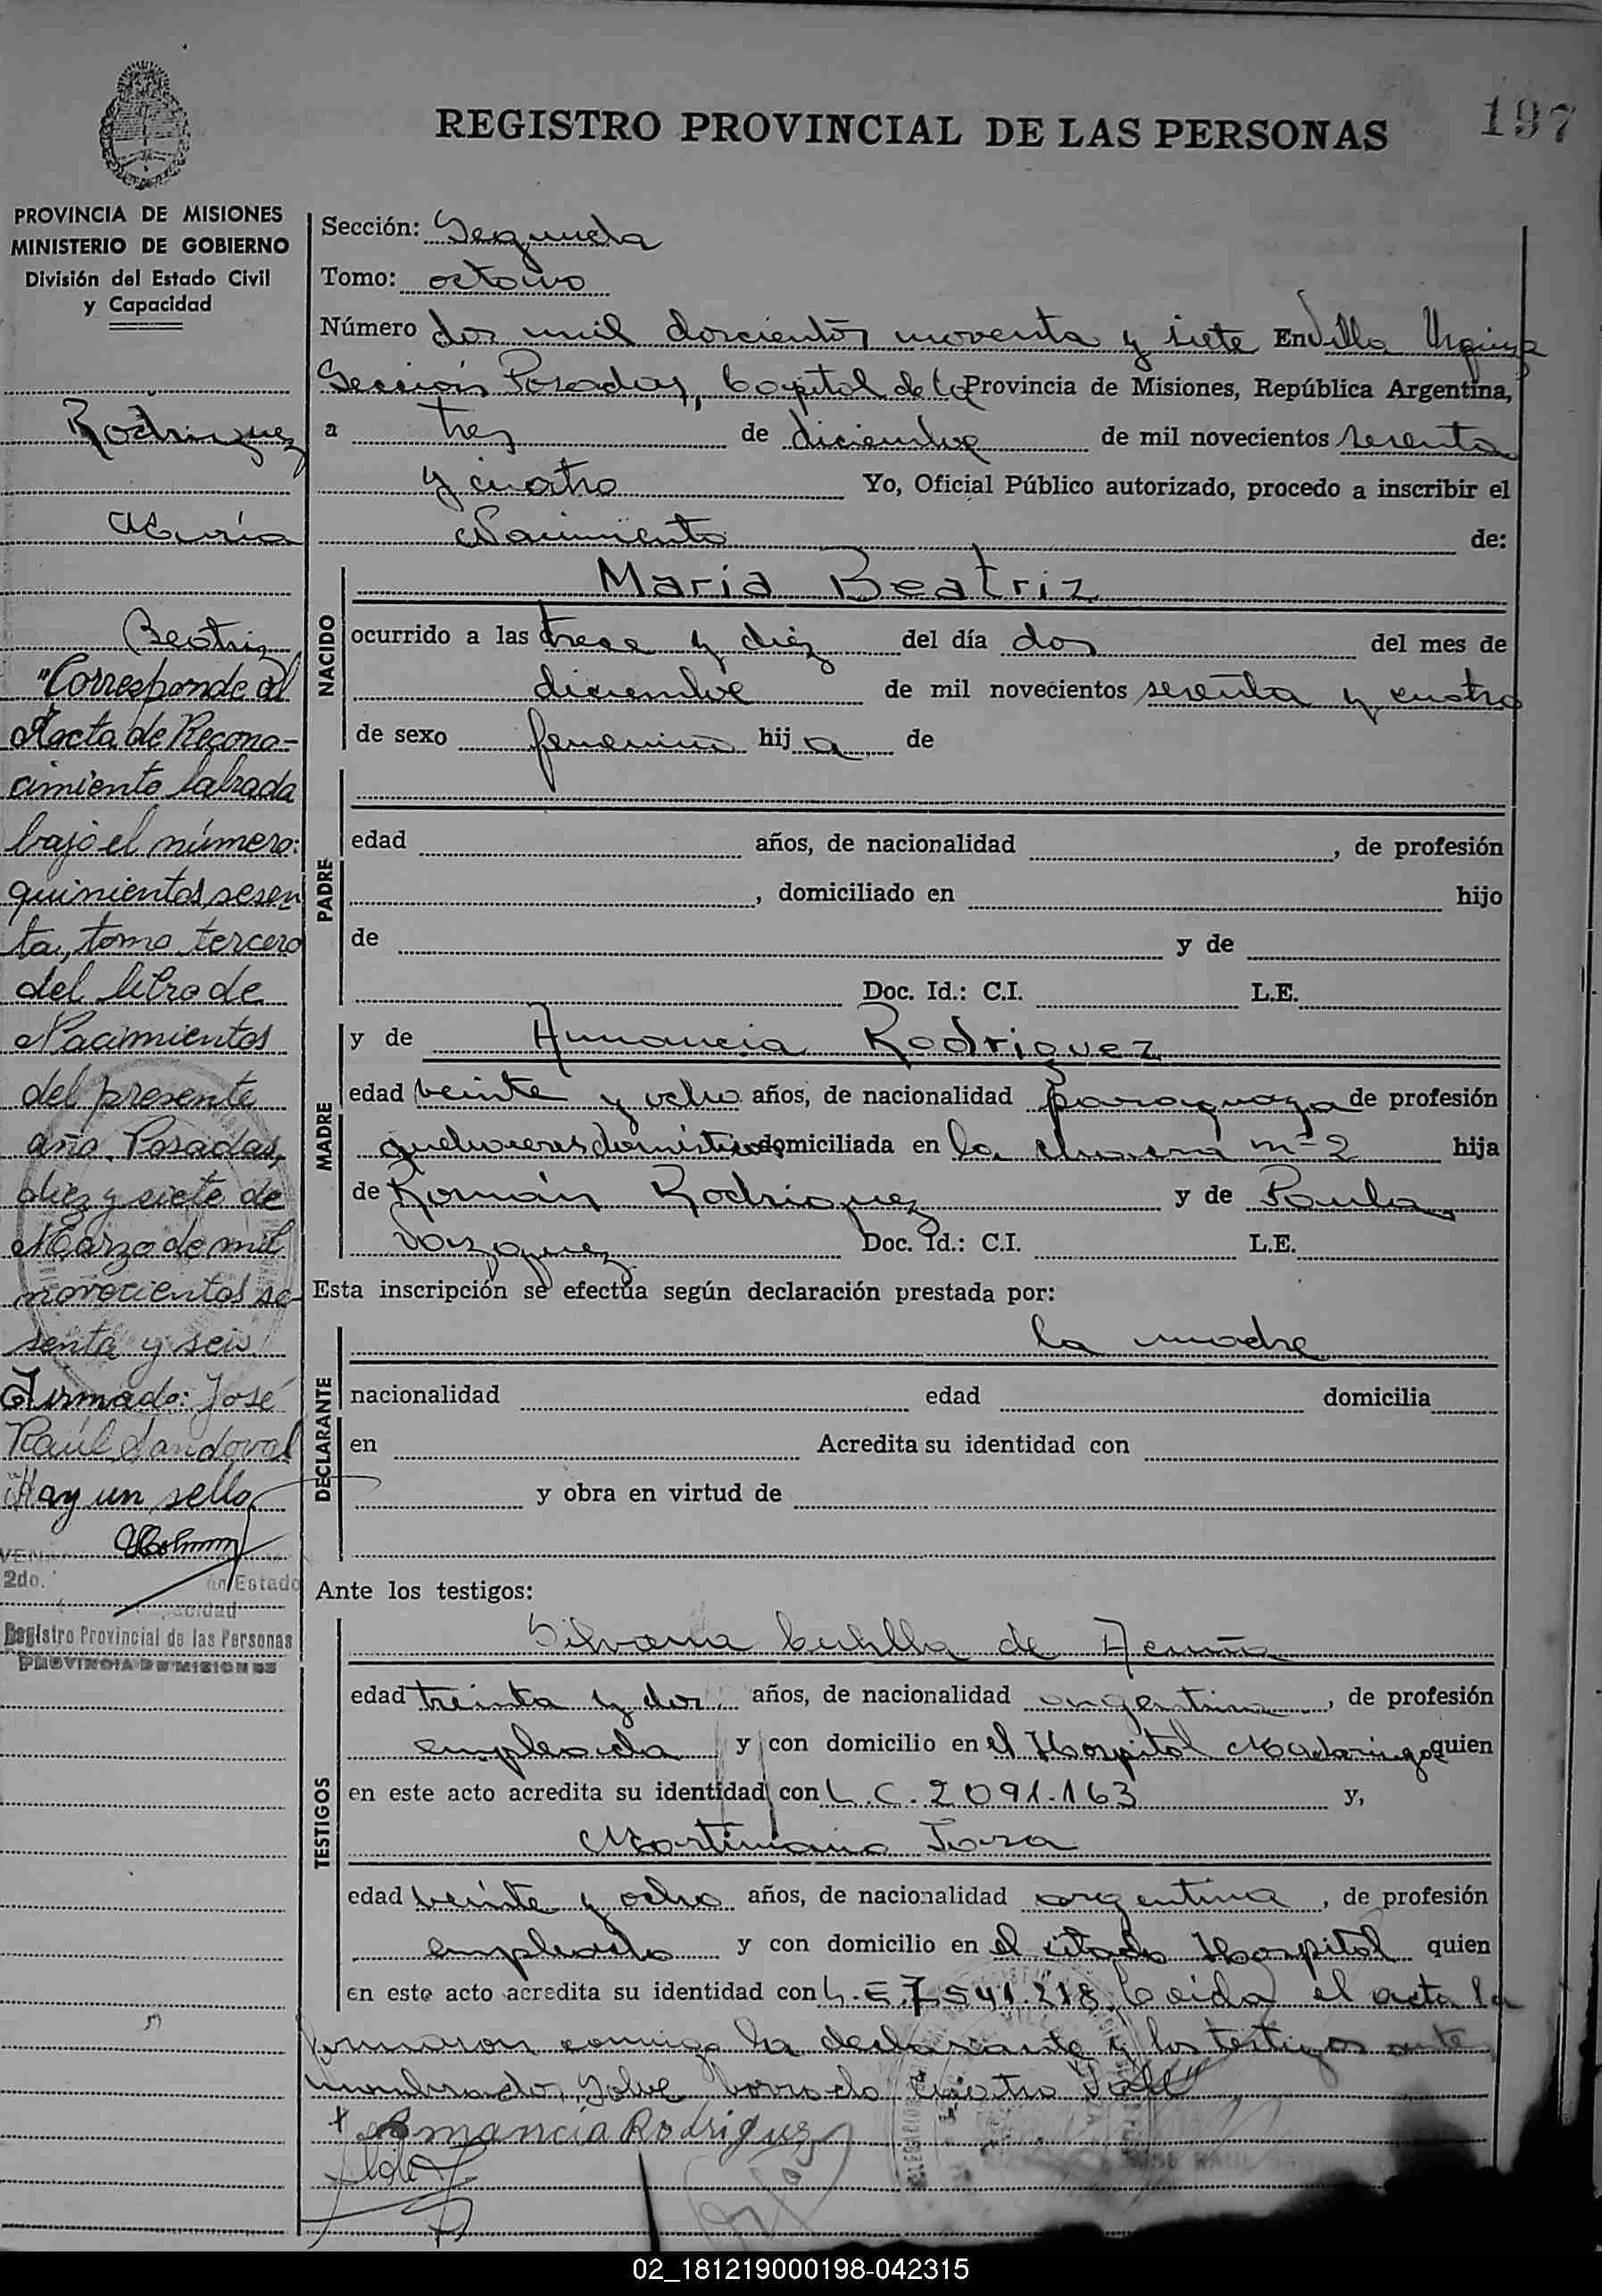 197
REGISTRO PROVINCIAL DE LAS PERSONAS
PROVINCIA DE MISIONES
MINISTERIO DE GOBIERNO
División del Estado Civil
y Capacidad
Rodriguez
María
Beatriz
"Corresponde al
Acta de Recono-
cimiento labrada
bajo el número:
quinientos sesen
ta, tomo tercero
del libro de
Nacimientos
del presente
año. Posadas,
diez y siete de
Marzo de mil
novecientos se-
senta y seis
Firmado: José
Raúl Sandoval
"Hay un sello
2do.
Estado
Registro Provincial de las Personas
PROVINCIA DE MISIONES
Sección: Segunda
Tomo: octavo
Número dos mil doscientos noventa y siete En Villa Urquiza
Sección Posadas, Capital de la Provincia de Misiones, República Argentina,
a tres de diciembre de mil novecientos sesenta
y cuatro Yo, Oficial Público autorizado, procedo a inscribir el
Nacimiento de:
NACIDO
Maria Beatriz
ocurrido a las trece y diez del día dos del mes de
diciembre de mil novecientos sesenta y cuatro
de sexo femenino hij a de
PADRE
edad años, de nacionalidad , de profesión
, domiciliado en hijo
de y de
Doc. Id.: C.I. L.E.
MADRE
y de Amancia Rodriguez
edad veinte y ocho años, de nacionalidad paraguaya de profesión
quehaceres domésticos domiciliada en la chacra nº 2 hija
de Román Rodriguez y de Paula
Vazquez Doc. Id.: C.I. L.E.
Esta inscripción se efectúa según declaración prestada por:
DECLARANTE
la madre
nacionalidad edad domicilia
en Acredita su identidad con
y obra en virtud de
Ante los testigos:
TESTIGOS
Silvana de Acuña
edad treinta y dos años, de nacionalidad argentina, de profesión
empleada y con domicilio en el Hospital Madariaga quien
en este acto acredita su identidad con L.C. 2091.163 y,
Martiniano
edad veinte y ocho años, de nacionalidad argentina, de profesión
empleado y con domicilio en el citado Hospital quien
en este acto acredita su identidad con L.E. 7541.218. Leida el acta la
firmaron conmigo la declarante y los testigos ante
nombrados. Sobre borrado cuatro Vale
Amancia Rodriguez
02_181219000198-042315